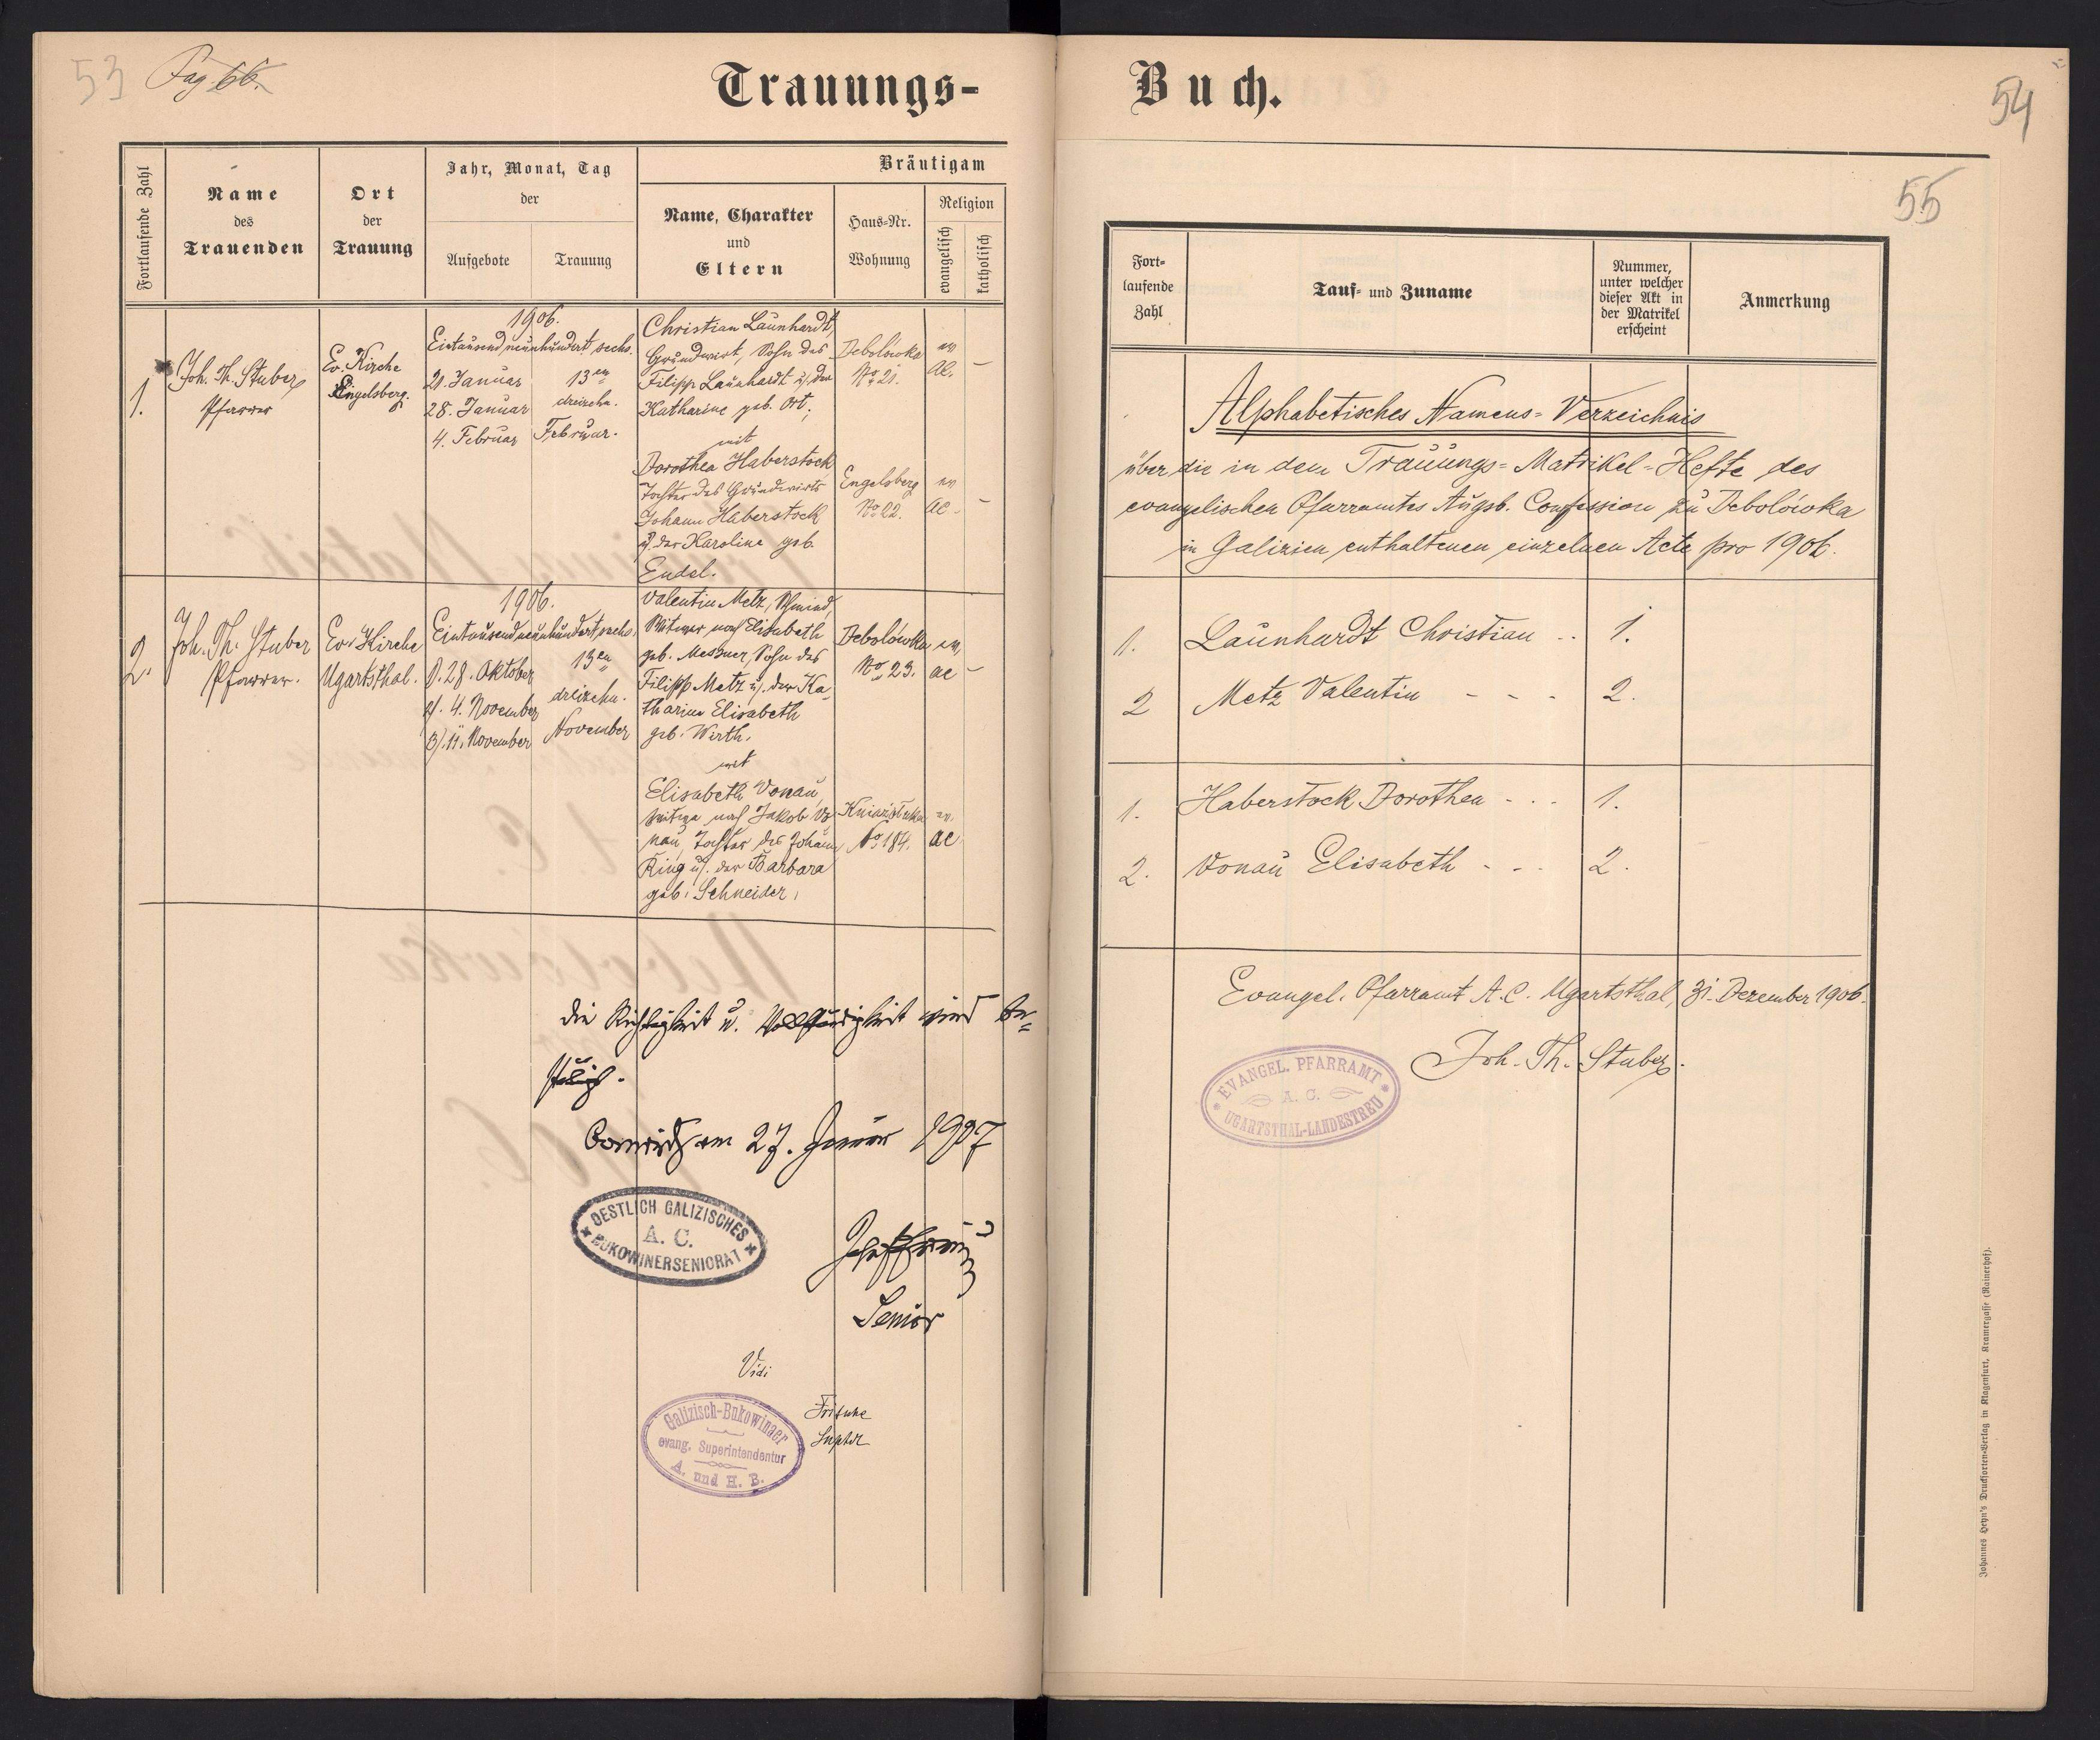 53 Pag 66.
Trauungs-
Fortlaufende Zahl
Name
des
Trauenden
Ort
der
Trauung
Jahr, Monat, Tag
der
Aufgebote
Trauung
Bräutigam
Name, Charakter
und
Eltern
Haus-Nr.
Wohnung
Religion
evangelisch
katholisch
1.
Joh. Th. Stuber
Pfarrer
Ev. Kirche
Engelsberg.
1906.
Eintausend neunhundert sechs.
21. Januar
28. Januar
4. Februar
13en
dreizehn.
Februar.
Christian Launhardt,
Grundwirt, Sohn des
Filipp Launhardt u. der
Katharine geb. Ort,
mit
Dorothea Haberstock
Tochter des Grundwirts
Johann Haberstock
u. der Karoline geb.
Endel.
Debolówka
No 21.
ev
AC. –
Engelsberg
No 22.
ev
AC. –
2.
Joh. Th. Stuber
Pfarrer.
Ev. Kirche
Ugartsthal.
1906.
Eintausend neunhundert sechs.
1). 28. Oktober
2). 4. November
3). 11. November
13en
dreizehn.
November
Valentin Metz, Schmied,
Witwer nach Elisabeth
geb. Messner, Sohn des
Filipp Metz u. der Ka-
tharine Elisabeth
geb. Wirth.
mit
Elisabeth Vonau
Witwe nach Jakob Vo
nau, Tochter des Johann
Ring u. der Barbara
geb. Schneider.
Debolówka
No 23.
ev,
AC –
No 184.
ev.
AC
die Richtigkeit u. Vollständigkeit wird be-
stätigt.
am 27. Januar 1907
OESTLICH GALIZISCHES
A. C.
BUKOWINERSENIORAT
Senior
Vidi
Galizisch-Bukowinaer
evang. Superintendentur
A. und H. B.
Fritsche
Suptdt
Buch.
54
55
Fort-
laufende
Zahl
Tauf- und Zuname
Nummer,
unter welcher
dieser Akt in
der Matrikel
erscheint
Anmerkung
Alphabetisches Namens-Verzeichnis
über die in dem Trauungs-Matrikel-Hefte des
evangelischen Pfarramtes Augsb. Confession zu Debolówka
in Galizien enthaltenen einzelnen Acte pro 1906.
1. Launhardt Christian .. 1.
2 Metz Valentin - - - 2.
1. Haberstock Dorothea - .. 1.
2. Vonau Elisabeth - .. 2.
Evangel. Pfarramt A.C. Ugartsthal, 31. Dezember 1906.
Joh. Th. Stuber.
EVANGEL. PFARRAMT
A. C.
UGARTSTHAL-LANDESTREU
Johannes Heyn's Drucksorten-Verlag in Klagenfurt, Kramergasse (Rainerhof).